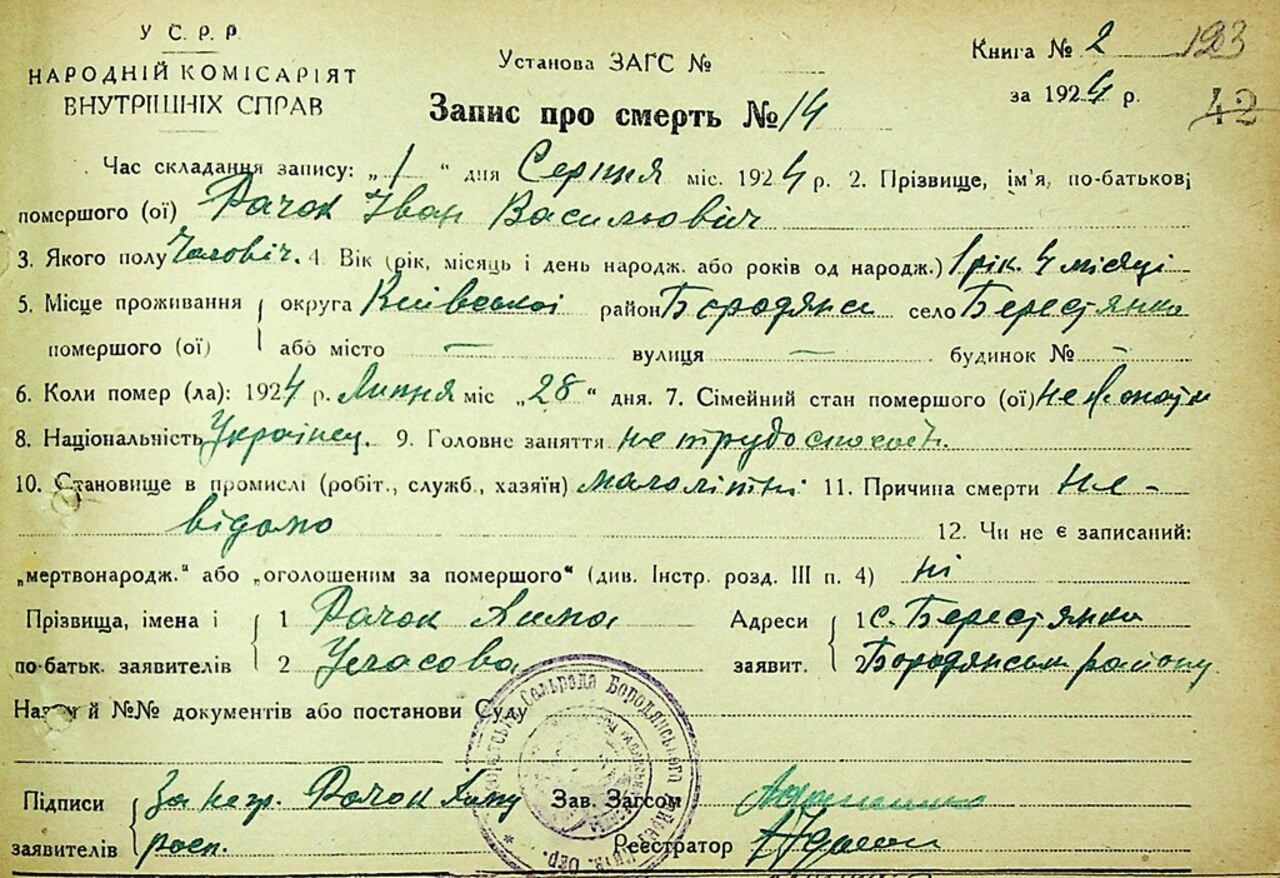 У С. Р. Р.
НАРОДНІЙ КОМІСАРІЯТ
ВНУТРІШНІХ СПРАВ
Установа ЗАГС №
Книга № 2 123
за 1924 р.
42
Запис про смерть № 14
Час складання запису: „1“ дня Серпня міс. 1924 р. 2. Прізвище, ім'я, по-батькові
помершого (ої) Рачок Іван Васильович
3. Якого полу Чоловіч. 4. Вік (рік, місяць і день народж. або років од народж.) 1 рік. 4 місяці
5. Місце проживання { округа Київської район Бородянск село Берестянка
помершого (ої) або місто — вулиця — будинок № –
6. Коли помер (ла): 1924 р. Липня міс „28“ дня. 7. Сімейний стан помершого (ої) не
8. Національність Українец. 9. Головне заняття не трудоспособн.
10. Становище в промислі (робіт., служб., хазяїн) малолітні 11. Причина смерти не-
відомо 12. Чи не є записаний:
„мертвонародж.“ або „оголошеним за помершого“ (див. Інстр. розд. III п. 4) ні
Прізвища, імена і { 1 Рачок Адреси { 1 с. Берестянка
по-батьк. заявителів 2 заявит. 2 Бородянськ району
Назви й №№ документів або постанови Суду
Підписи { За негр. Рачок Зав. Загсом
заявителів росп. Реєстратор
Сельрада Бородянського